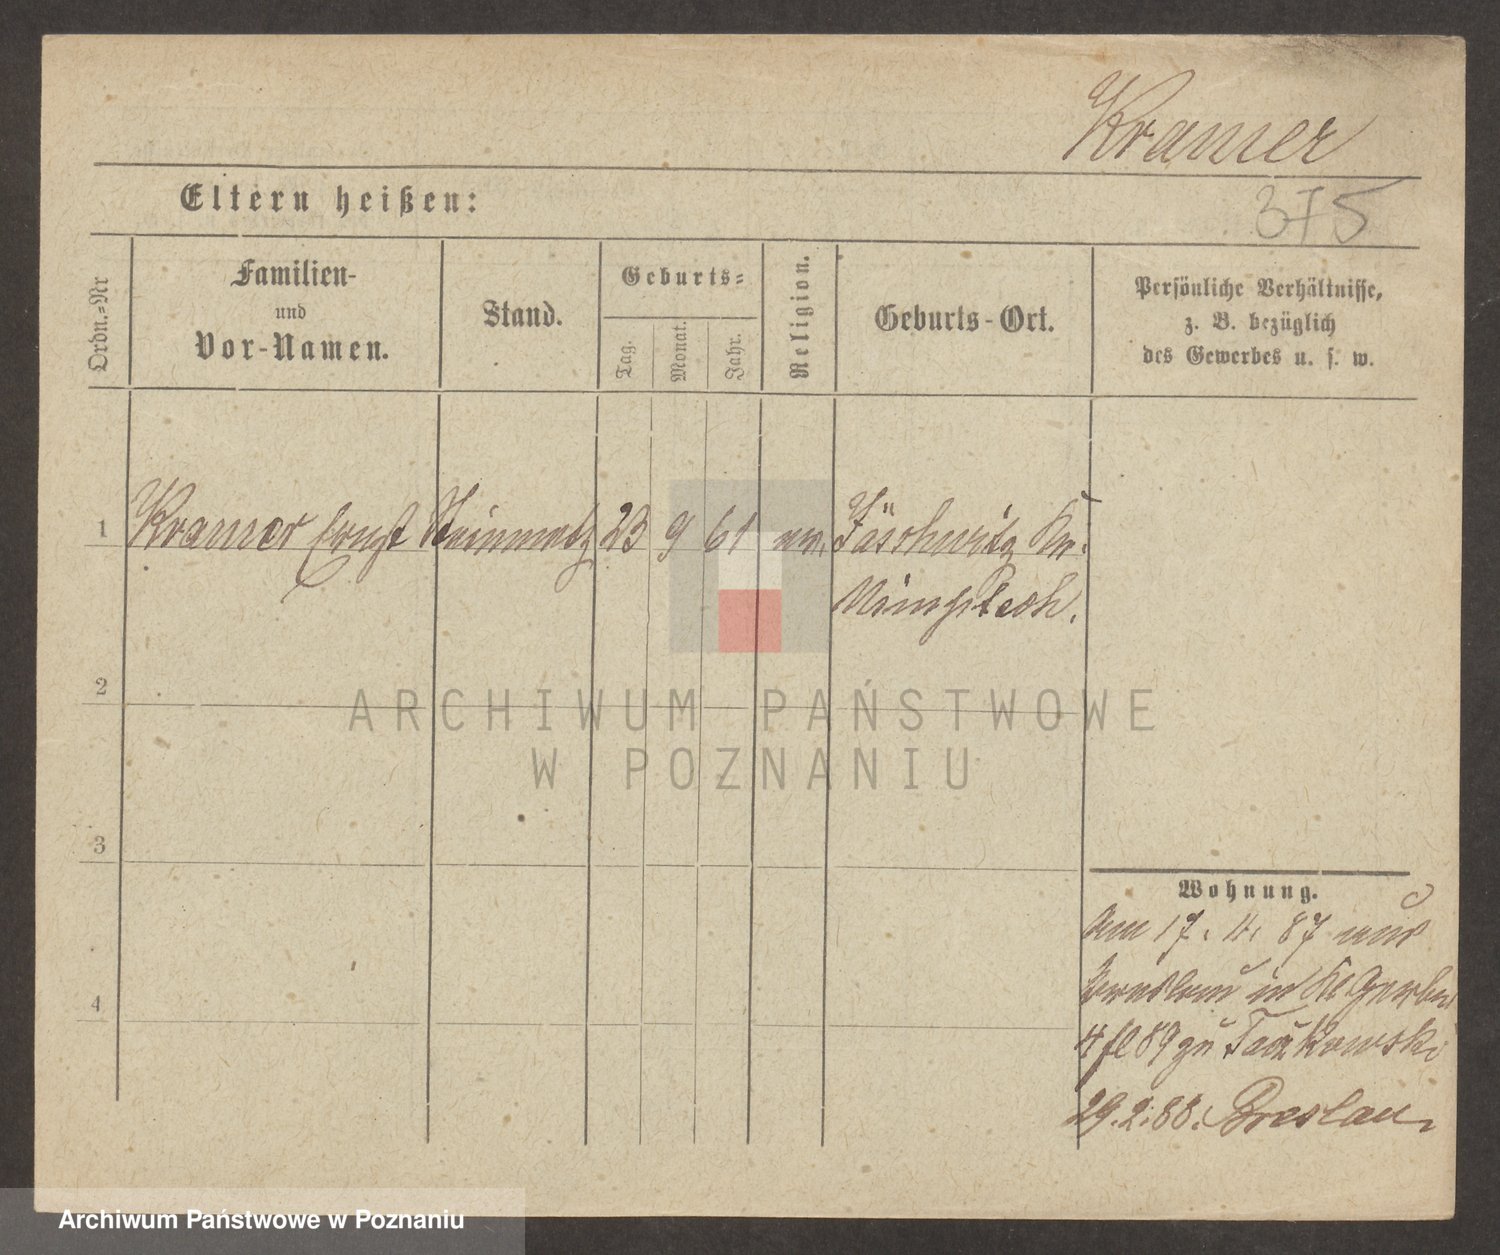 Kramer
Eltern heißen:
375
Ordn.=Nr
Familien-
und
Vor-Namen.
Stand.
Geburts=
Tag.
Monat.
Jahr.
Religion.
Geburts-Ort.
Persönliche Verhältnisse,
z. B. bezüglich
des Gewerbes u. s. w.
1 Kramer Ernst Steinmetz 23 9 61 ev. Jäschwitz Kr.
2
3
4
Wohnung.
Am 17. 4. 87 aus
Breslau in Kl Gerber
4 fl 89 zu
29. 2. 88. Breslau.
ARCHIWUM PAŃSTWOWE
W POZNANIU
Archiwum Państwowe w Poznaniu